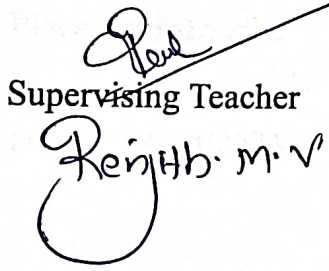 Supervising Teacher
Renjith. M. V